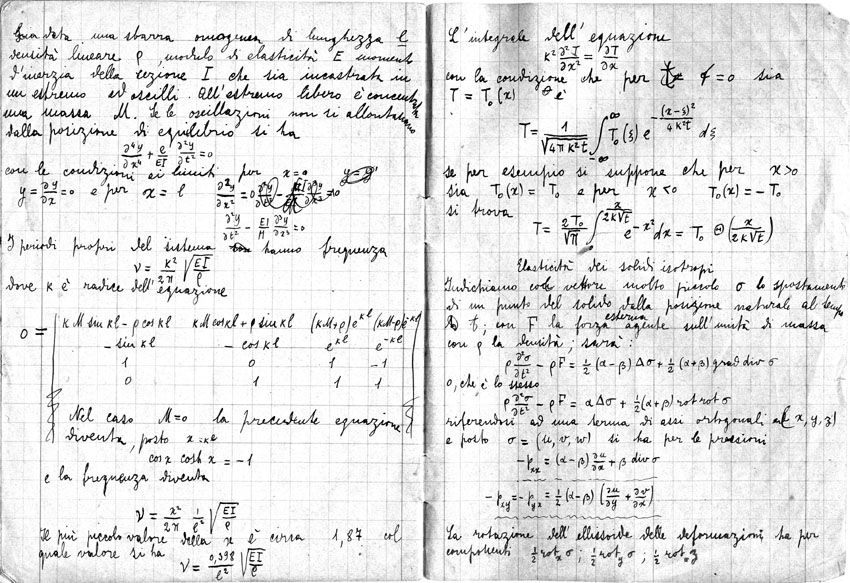 Sia data una sbarra omogenea di lunghezza l
densità lineare ρ, modulo di elasticità E momento
d'inerzia della sezione I che sia incastrata in
un estremo ed oscilli. All'estremo libero è concentrata
una massa M. Se le oscillazioni non si allontanano
dalla posizione di equilibrio si ha
∂⁴y/∂x⁴ + ρ/EI ∂²y/∂t² = 0
con le condizioni ai limiti per x=0
y = ∂y/∂x = 0 e per x = l ∂²y/∂x² = 0
∂²y/∂t² - EI/M ∂³y/∂x³ = 0
I periodi propri del sistema hanno frequenza
ν = k²/2π √(EI/ρ)
dove k è radice dell'equazione
0 = | kM sin kl - ρ cos kl   kM cos kl + ρ sin kl   (kM+ρ)e^kl   (kM-ρ)e^-kl |
- sin kl   - cos kl   e^kl   e^-kl
1   0   1   -1
0   1   1   1
Nel caso M=0 la precedente equazione
diventa, posto x = kl
cos x cosh x = -1
e la frequenza diventa
ν = x²/2π 1/l² √(EI/ρ)
Il più piccolo valore della x è circa 1,87 col
quale valore si ha
ν = 0,558/l² √(EI/ρ)
L'integrale dell'equazione
k² ∂²T/∂x² = ∂T/∂t
con la condizione che per t=0 sia
T = T₀(x) è
T = 1/√(4πk²t) ∫_{-∞}^{∞} T₀(ξ) e^{-(x-ξ)²/4k²t} dξ
se per esempio si suppone che per x>0
sia T₀(x) = T₀ e per x<0 T₀(x) = - T₀
si trova
T = 2T₀/√π ∫_0^{x/2k√t} e^{-x²} dx = T₀ Θ(x/2k√t)
Elasticità dei solidi isotropi
Indichiamo col vettore molto piccolo σ lo spostamento
di un punto del solido dalla posizione naturale al tempo
t; con F la forza esterna agente sull'unità di massa
con ρ la densità; sarà:
ρ ∂²σ/∂t² - ρF = ½(α-β) Δσ + ½(α+β) grad div σ
o, che è lo stesso
ρ ∂²σ/∂t² - ρF = α Δσ + ½(α+β) rot rot σ
riferendosi ad una terna di assi ortogonali (x, y, z)
e posto σ = (u, v, w) si ha per le pressioni
-p_xx = (α-β) ∂u/∂x + β div σ
-p_xy = -p_yx = ½(α-β) (∂u/∂y + ∂v/∂x)
La rotazione dell'ellissoide delle deformazioni ha per
componenti ½ rot_x σ ; ½ rot_y σ ; ½ rot_z